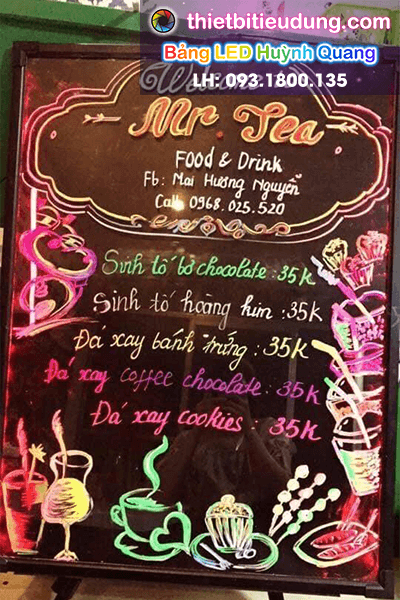 thietbitieudung.com
Bảng LED Huỳnh Quang
LH: 093.1800.135
Welcome
Mr. Tea
Food & Drink
Fb: Mai Hương Nguyễn
Call: 0968.025.520
Sinh tố bơ chocolate : 35K
Sinh tố hoàng kim : 35K
Đá xay bánh trứng : 35K
Đá xay coffee chocolate : 35K
Đá xay cookies : 35K